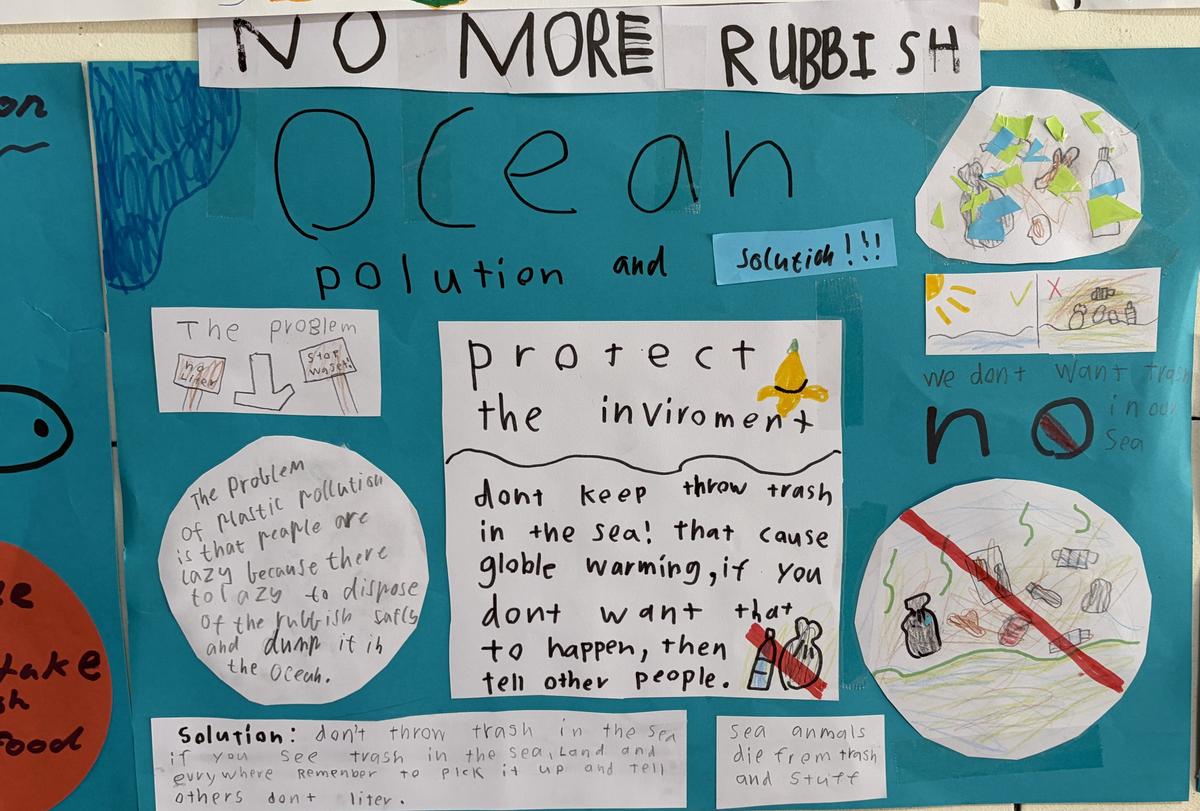 NO MORE RUBBISH
Ocean
polution and solution!!!
The problem
no
Liter
Stop
protect
the inviroment
dont keep throw trash
in the sea! that cause
globle warming, if you
dont want that
to happen, then
tell other people.
The Problem
of plastic pollution
is that peaple are
lazy because there
to lazy to dispose
of the rubbish
and dump it in
the Ocean.
we dont want trash
in our
Sea
no
Solution: don't throw trash in the Sea
if you See trash in the Sea, Land and
evrywhere Remember to pick it up and tell
others dont liter.
Sea anmals
die from trash
and Stuff
on
take
Food